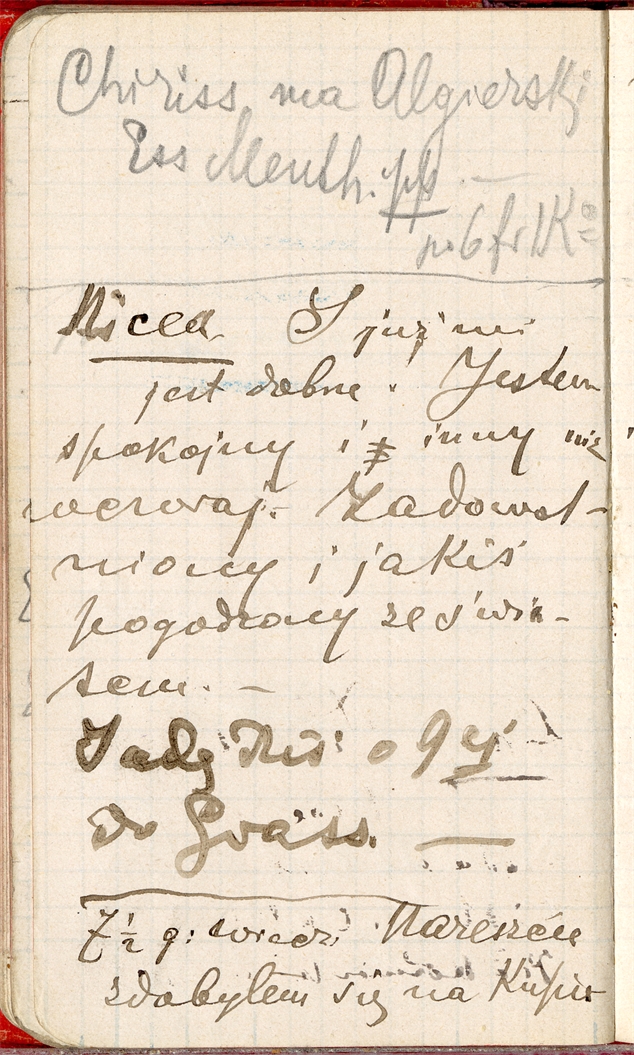 Chiriss ma Algierski
Ess Menth. pp. —
po 6 fr 1 Ko
Nicea I już mi
jest dobrze! Jestem
spokojny i inny niż
wczoraj. Zadowol-
niony i jakiś
pogodzony ze świa-
tem. —
Jadę dziś o 9 ej
do Grass. —
7 ½ g: wiecz. Nareszcie
zdobyłem się na Kupie